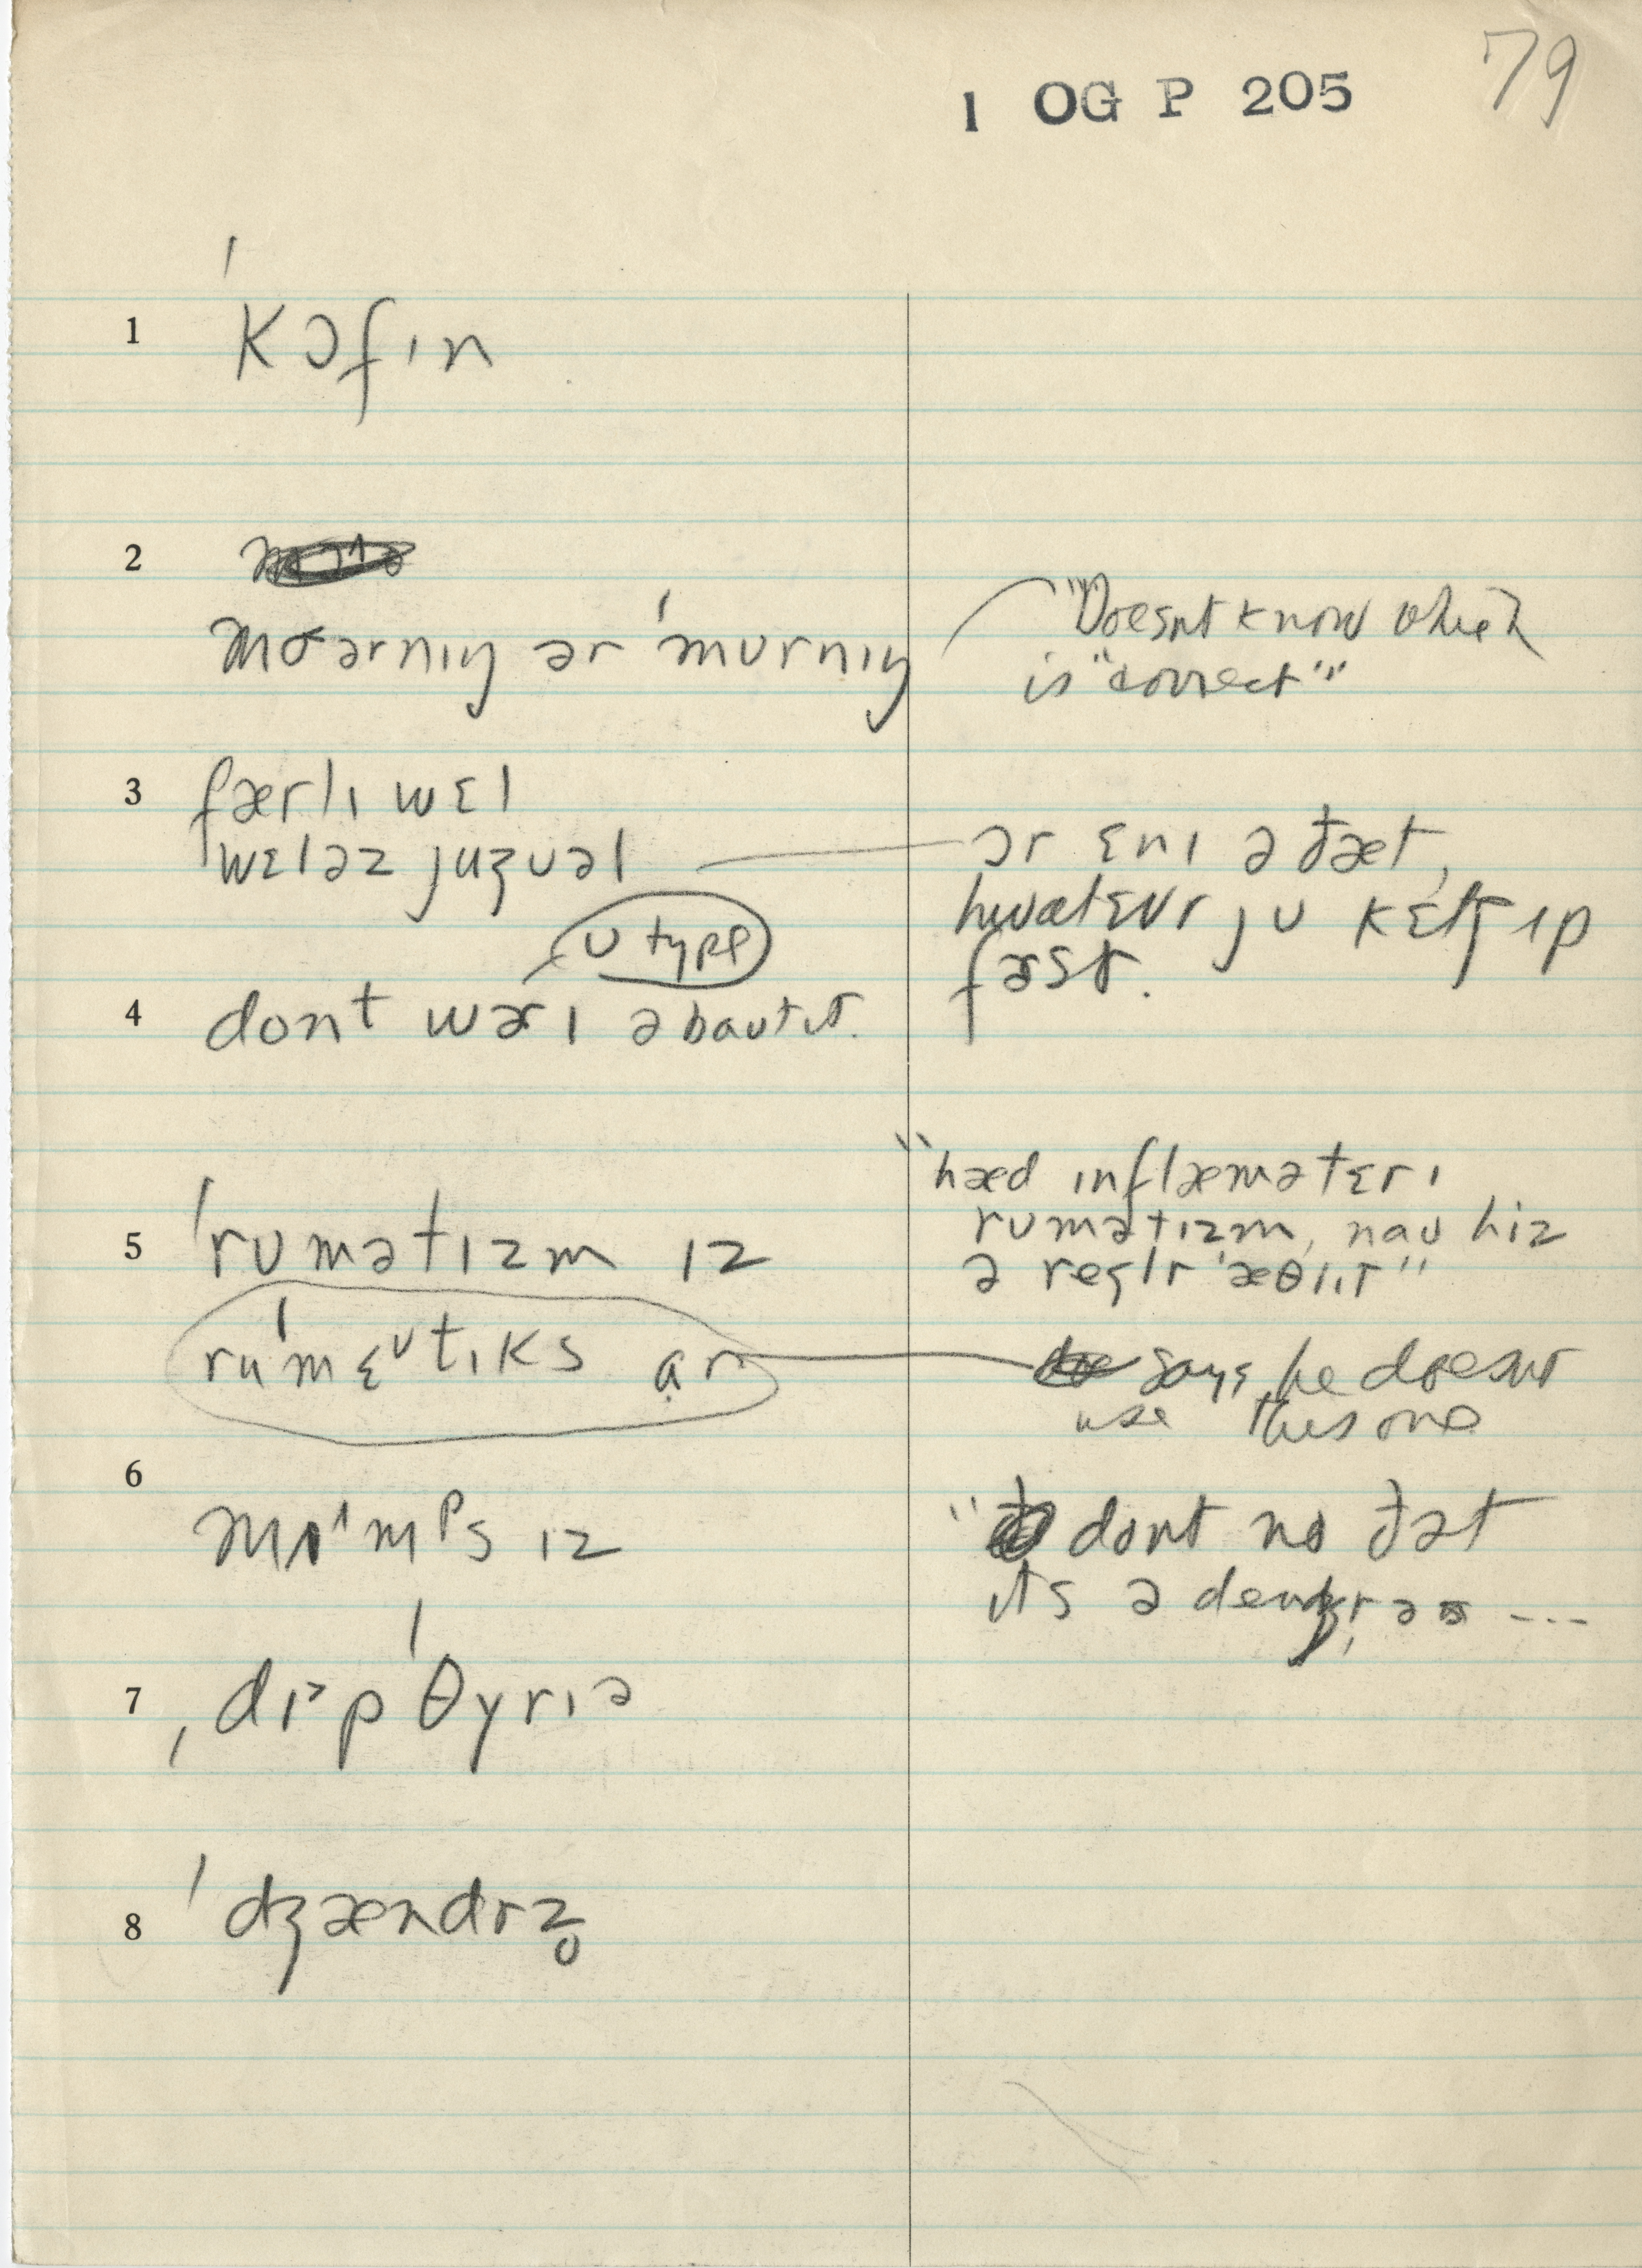 1 OG P 205 79
1 ˈkɔfɪn
2
moərnɪŋ ər ˈmurnɪŋ "Doesnt know which
is "correct""
3 færlɪ wɛl
wɛl əz juʒuəl ɔr ɛnɪ ə ðæt,
hwatɛvr ju kɛtʃ ɪp
ʊ type
fəst.
4 dont wɜrɪ əbaʊt ɪt.
"hæd ɪnflæmətɛrɪ
5 ˈrumətɪzm ɪz rumətɪzm, naʊ hiz
ə reglr ˈæθlɪt"
ruˈmɛᴜtɪks ɑr says he doesnt
use this one
6
mʌˈmᵖs ɪz "dont no ðət
ɪts a
7 ˌdɪəpˈθyrɪə
8 ˈdʒændrz̥